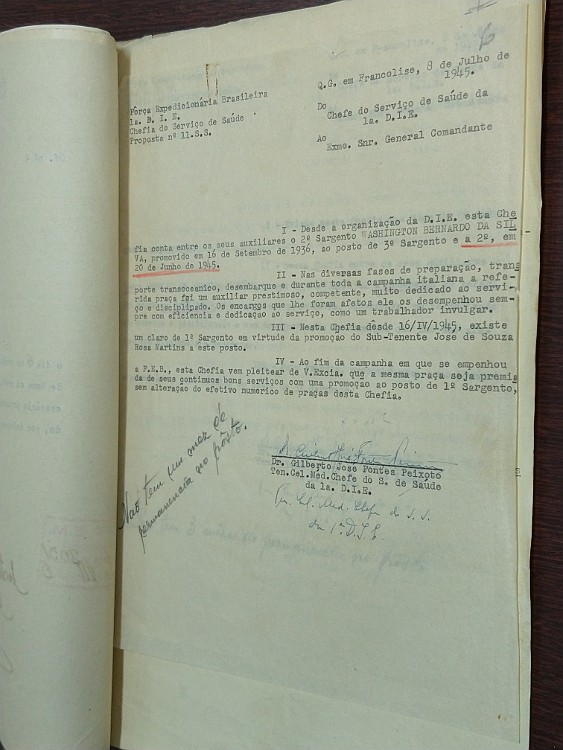 6
Q.G. em Francolise, 8 de Julho de
1945.
Fôrça Expedicionária Brasileira
1a. D. I. E.
Chefia do Serviço de Saúde
Proposta nº 11.S.S.
Do
Chefe do Serviço de Saúde da
1a. D.I.E.
Ao
Exmo. Snr. General Comandante
I - Desde a organização da D.I.E. esta Che
fia conta entre os seus auxiliares o 2º Sargento WASHINGTON BERNARDO DA SIL
VA, promovido em 16 de Setembro de 1936, ao posto de 3º Sargento e a 2º, em
20 de Junho de 1945.
II - Nas diversas fases de preparação, trans
porte transoceamico, desembarque e durante toda a campanha italiana a refe-
rida praça foi um auxiliar prestimoso, competente, muito dedicado ao servi-
ço e disciplinado. Os encargos que lhe foram afetos ele os desempenhou sem-
pre com eficiencia e dedicação ao serviço, como um trabalhador invulgar.
III - Nesta Chefia desde 16/IV/1945, existe
um claro de 1º Sargento em virtude da promoção do Sub-Tenente Jose de Souza
Rosa Martins a este posto.
IV - Ao fim da campanha em que se empenhou
a F.E.B., esta Chefia vem pleitear de V.Excia. que a mesma praça seja premia
da de seus continuos bons serviços com uma promoção ao posto de 1º Sargento,
sem alteração do efetivo numerico de praças desta Chefia.
Não tem um mez de
permanencia no pôsto.
Dr. Gilberto José Pontes Peixoto
Ten.Cel.Med.Chefe do S. de Saúde
da 1a. D.I.E.
Chefe do S. S.
da 1ª D.I.E.